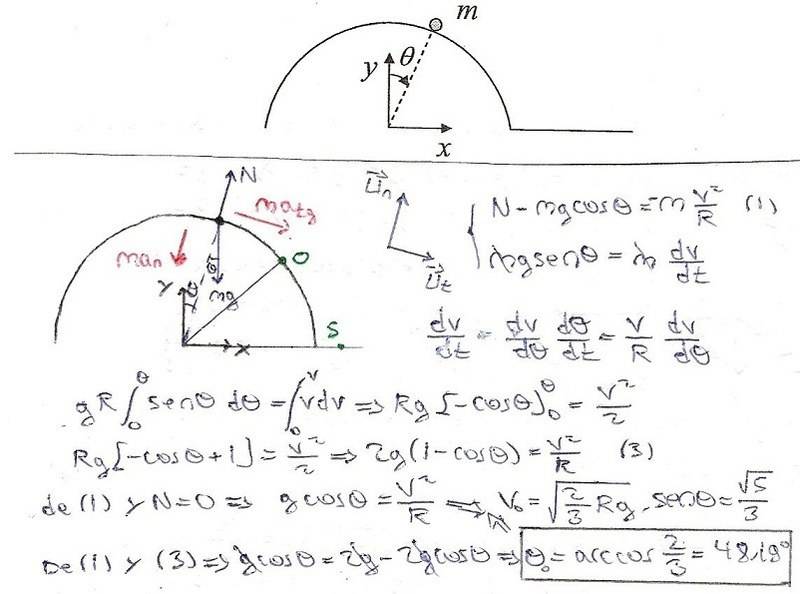 m
θ
y
x
N
matg
man
θ
θ
mg
O
Y
X
S
U⃗n
U⃗t
N - mg cosθ = m v²/R (1)
mg senθ = m dv/dt
dv/dt = dv/dθ dθ/dt = v/R dv/dθ
gR ∫₀^θ senθ dθ = ∫₀^v v dv ⇒ Rg [-cosθ]₀^θ = v²/2
Rg [-cosθ + 1] = v²/2 ⇒ 2g(1 - cosθ) = v²/R (3)
de (1) y N=0 ⇒ g cosθ = v²/R ⇒ v₀ = √(2/3 Rg) . senθ = √5/3
De (1) y (3) ⇒ g cosθ = 2g - 2g cosθ ⇒ θ₀ = arccos 2/3 = 48.18°